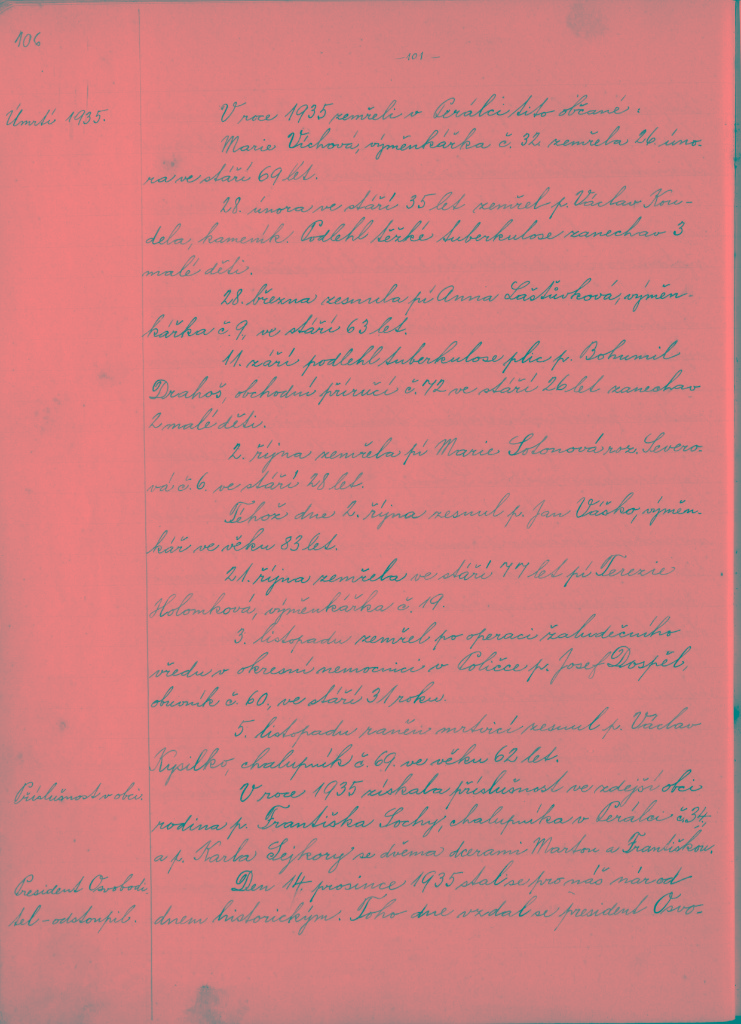 106
- 101 -
Úmrtí 1935.
V roce 1935 zemřeli v Perálci tito občané:
Marie Víchová, výměnkářka č. 32 zemřela 26. úno-
ra ve stáří 69 let.
28. února ve stáří 35 let zemřel p. Václav Kou-
dela, kameník. Podlehl těžké tuberkulose zanechav 3
malé děti.
28. března zesnula pí Anna Laštůvková, výměn-
kářka č. 9, ve stáří 63 let.
11. září podlehl tuberkulose plic p. Bohumil
Drahoš, obchodní příručí č. 72 ve stáří 26 let zanechav
2 malé děti.
2. října zemřela pí Marie Sotonová roz. Severo-
vá č. 6. ve stáří 28 let.
Téhož dne 2. října zesnul p. Jan Váško, výměn-
kář ve věku 83 let.
21. října zemřela ve stáří 77 let pí Terezie
Holomková, výměnkářka č. 19.
3. listopadu zemřel po operaci žaludečního
vředu v okresní nemocnici v Poličce p. Josef Dospěl,
obuvník č. 60, ve stáří 31 roku.
5. listopadu raněn mrtvicí zesnul p. Václav
Kysilko, chalupník č. 69. ve věku 62 let.
Příslušnost v obci.
V roce 1935 získala příslušnost ve zdejší obci
rodina p. Františka Sochy, chalupníka v Perálci č. 34,
a p. Karla Lejkory se dvěma dcerami Martou a Františkou.
President Osvobodi-
tel - odstoupil.
Den 14. prosince 1935 stal se pro náš národ
dnem historickým. Toho dne vzdal se president Osvo-